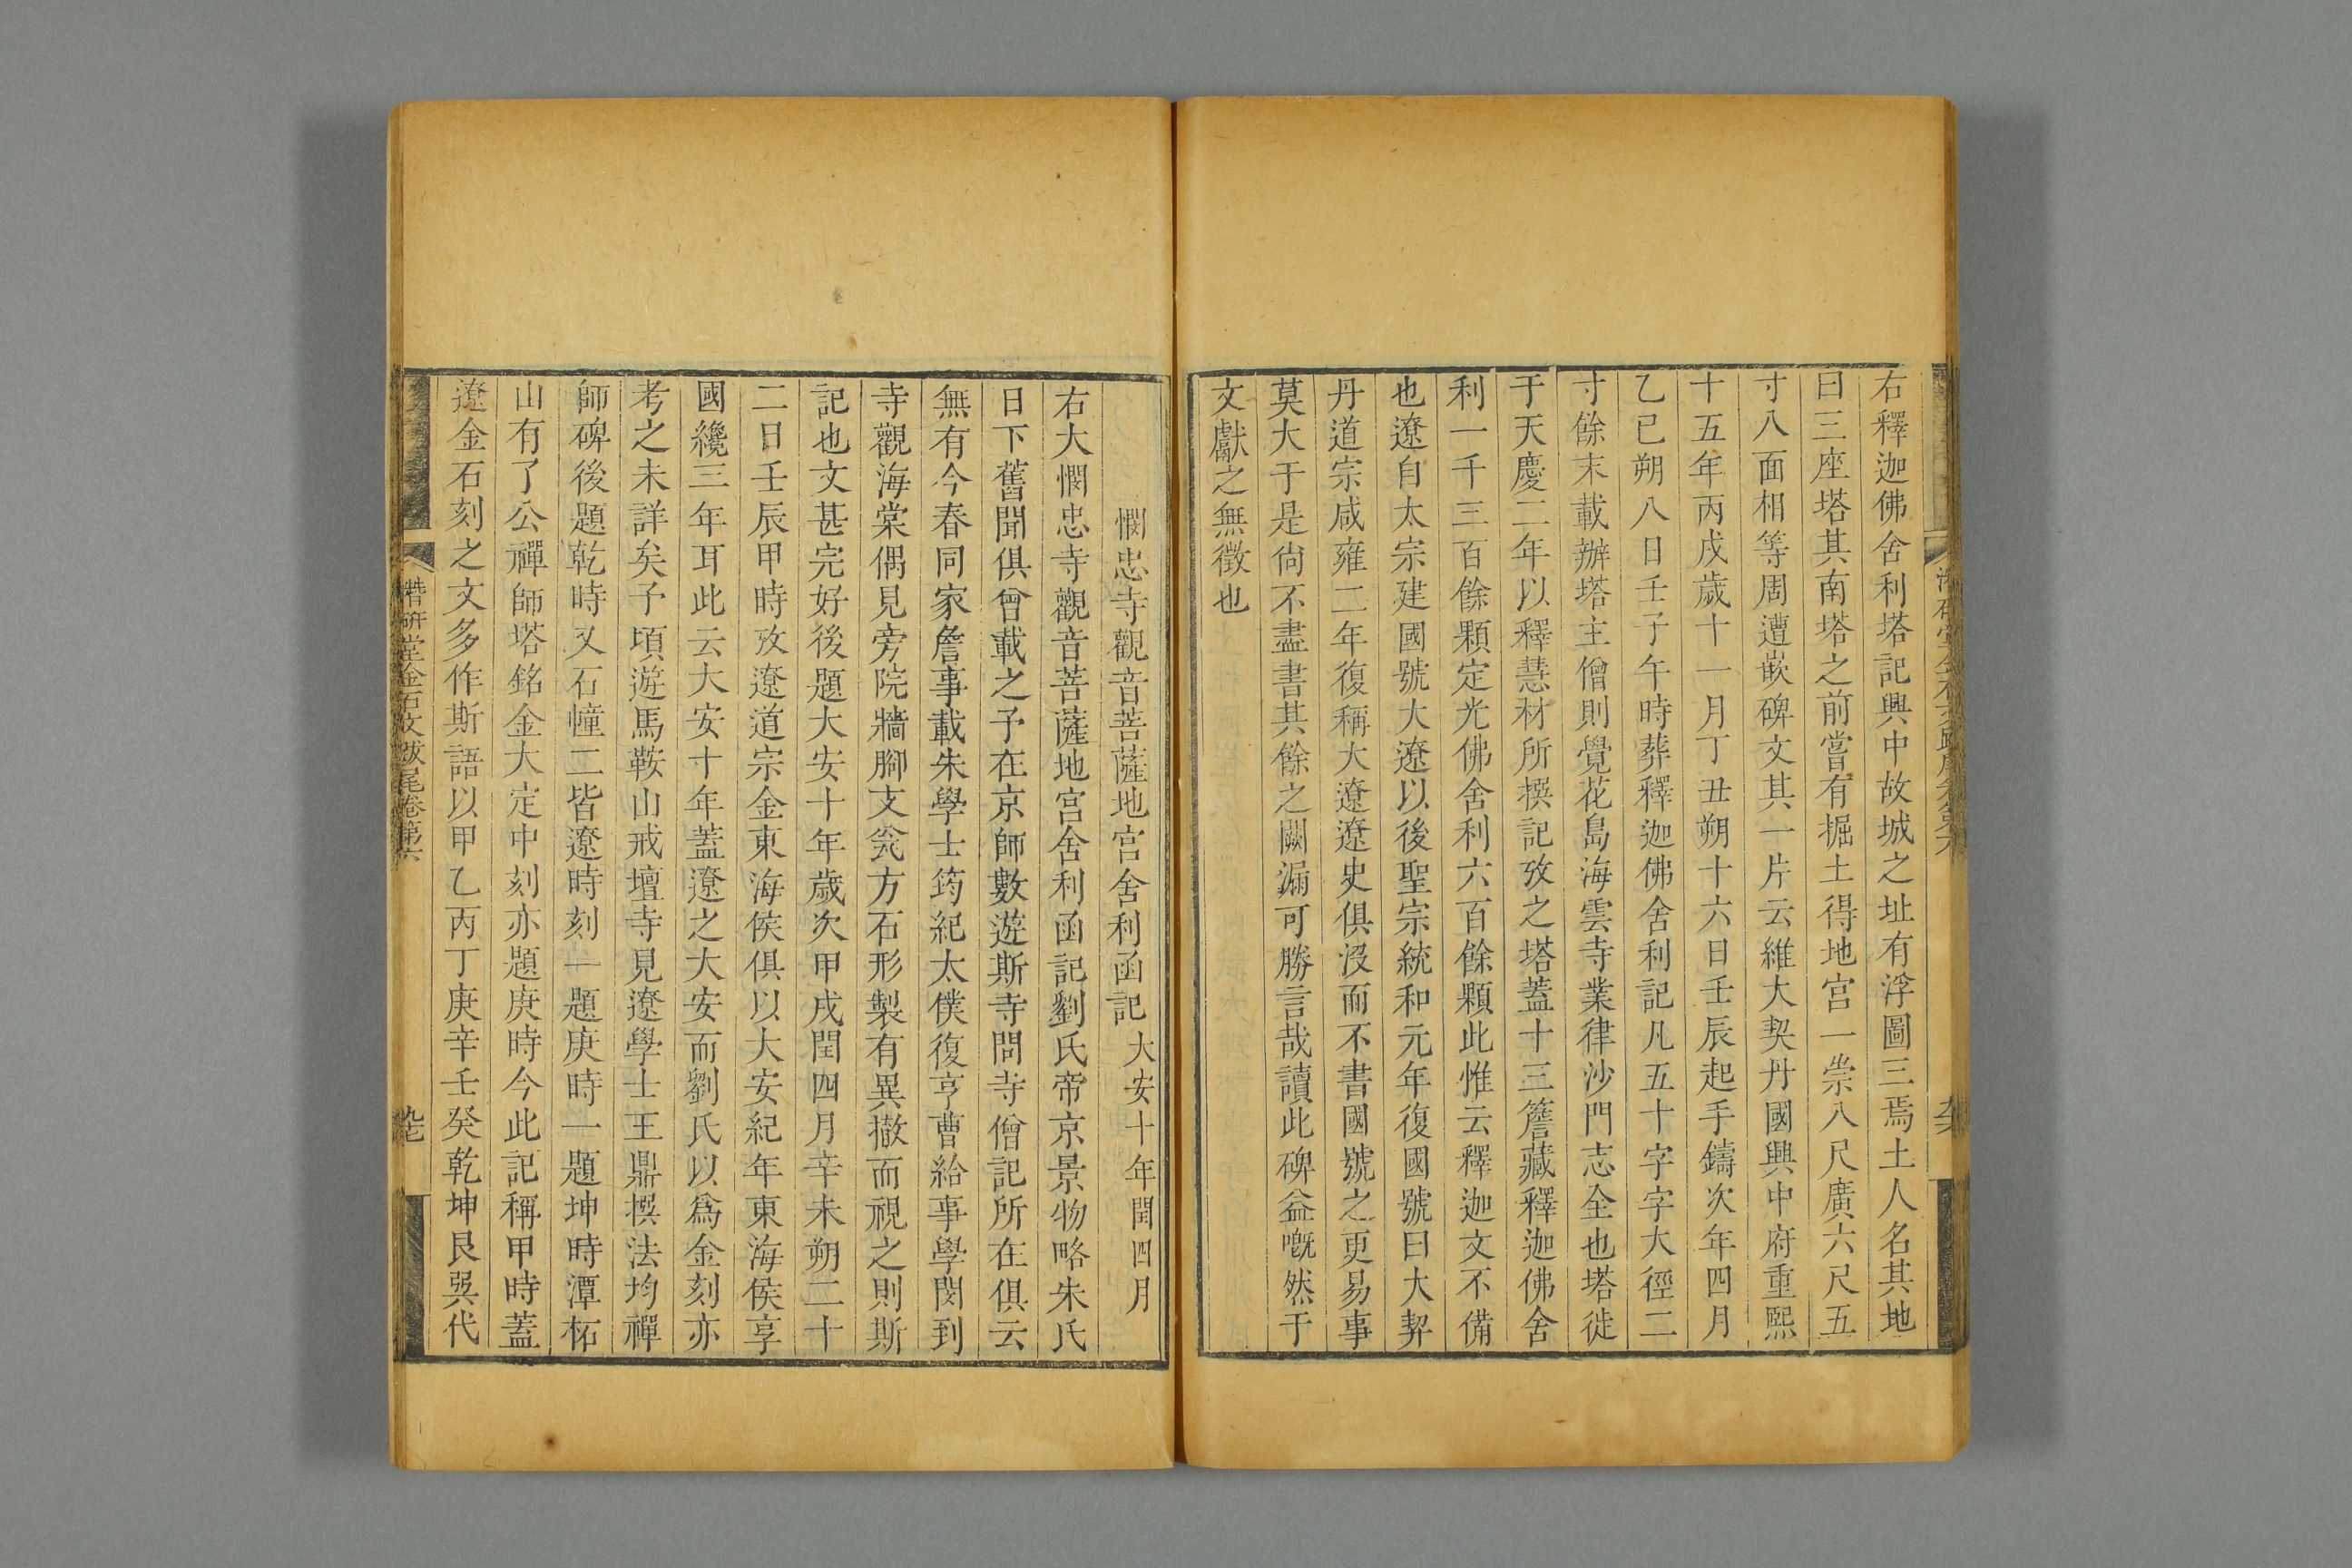 右釋迦佛舍利塔記興中故城之址有浮圖三焉土人名其地
曰三座塔其南塔之前嘗有掘土得地宮一崇八尺廣六尺五
寸八面相等周遭嵌碑文其一片云維大契丹國興中府重熙
十五年丙戌歲十一月丁丑朔十六日壬辰起手鑄次年四月
乙巳朔八日壬子午時葬釋迦佛舍利記凡五十字字大徑二
寸餘末載辦塔主僧則覺花島海雲寺業律沙門志全也塔徙
于天慶二年以釋慧材所撰記攷之塔蓋十三簷藏釋迦佛舍
利一千三百餘顆定光佛舍利六百餘顆此惟云釋迦文不備
也遼自太宗建國號大遼以後聖宗統和元年復國號曰大契
丹道宗咸雍二年復稱大遼遼史俱沒而不書國號之更易事
莫大于是尙不盡書其餘之闕漏可勝言哉讀此碑益嘅然于
文獻之無徵也
憫忠寺觀音菩薩地宮舍利函記 大安十年閏四月
右大憫忠寺觀音菩薩地宮舍利函記劉氏帝京景物略朱氏
日下舊聞俱曾載之予在京師數遊斯寺問寺僧記所在俱云
無有今春同家詹事載朱學士筠紀太僕復亨曹給事學閔到
寺觀海棠偶見旁院牆腳支瓮方石形製有異撤而視之則斯
記也文甚完好後題大安十年歲次甲戌閏四月辛未朔二十
二日壬辰甲時攷遼道宗金東海侯俱以大安紀年東海侯享
國纔三年耳此云大安十年蓋遼之大安而劉氏以爲金刻亦
考之未詳矣予頃遊馬鞍山戒壇寺見遼學士王鼎撰法均禪
師碑後題乾時又石幢二皆遼時刻一題庚時一題坤時潭柘
山有了公禪師塔銘金大定中刻亦題庚時今此記稱甲時蓋
遼金石刻之文多作斯語以甲乙丙丁庚辛壬癸乾坤艮巽代
潛研堂金石文跋尾卷第六